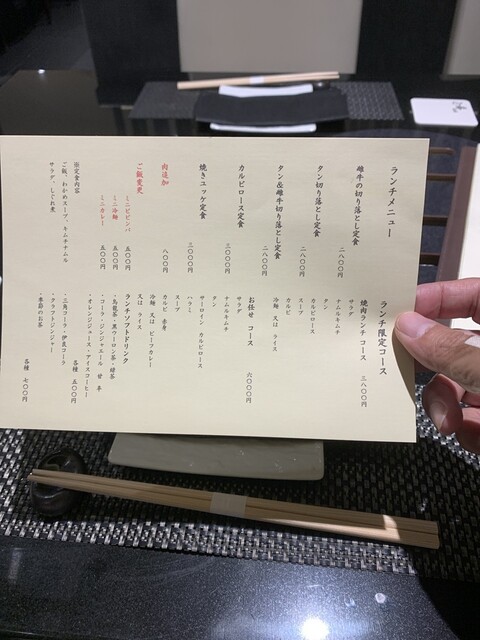 ランチメニュー
雌牛の切り落とし定食 二八〇〇円
タン切り落とし定食 二八〇〇円
タン&雌牛切り落とし定食 二八〇〇円
カルビロース定食 三〇〇〇円
焼きユッケ定食 三〇〇〇円
肉追加 八〇〇円
ご飯変更 ミニビビンバ 五〇〇円
ミニ冷麺 五〇〇円
ミニカレー 五〇〇円
※定食内容
ご飯、わかめスープ、キムチナムル
サラダ、しぐれ煮
ランチ限定コース
焼肉ランチ コース 三八〇〇円
サラダ
ナムルキムチ
タン
カルビロース
スープ
カルビ
冷麺 又は ライス
お任せ コース 六〇〇〇円
サラダ
ナムルキムチ
タン
サーロイン カルビロース
ハラミ
スープ
カルビ 赤身
冷麺 又は ビーフカレー
又は ライス
ランチソフトドリンク
・烏龍茶・黒ウーロン茶・緑茶
・コーラ・ジンジャエール 甘 辛
・オレンジジュース・アイスコーヒー
各種 五〇〇円
・三角コーラ・伊良コーラ
・クラフトジンジャー
・季節のお茶
各種 七〇〇円